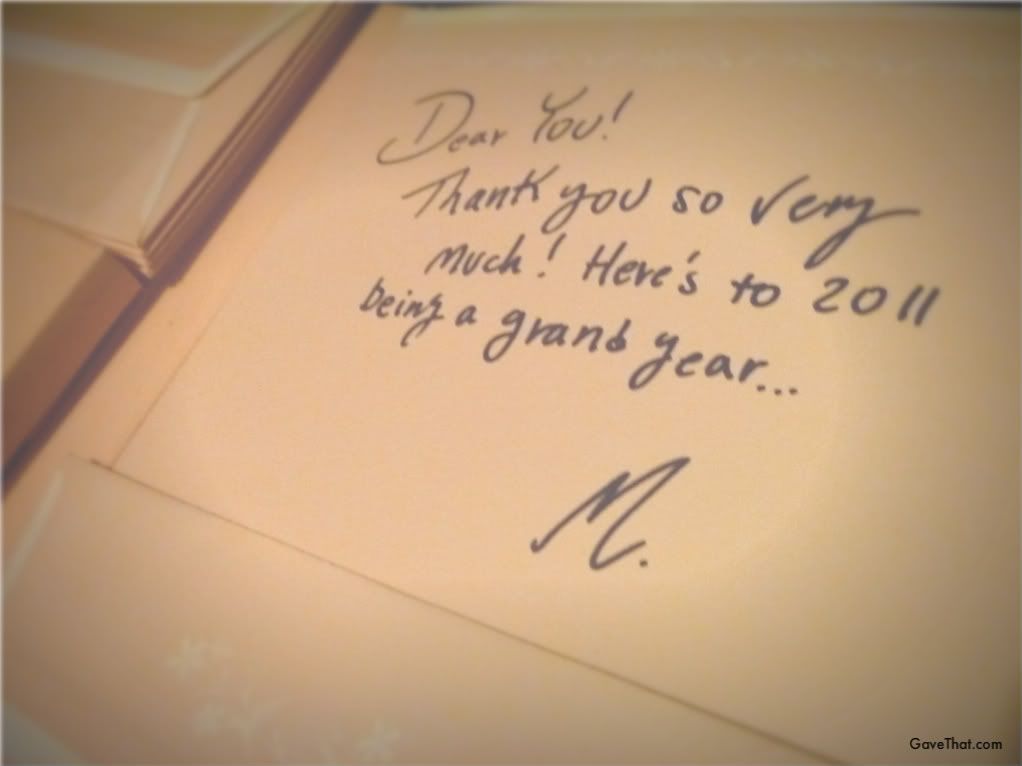 Dear You!
Thank you so very
much! Here's to 2011
being a grand year...
M.
GaveThat.com